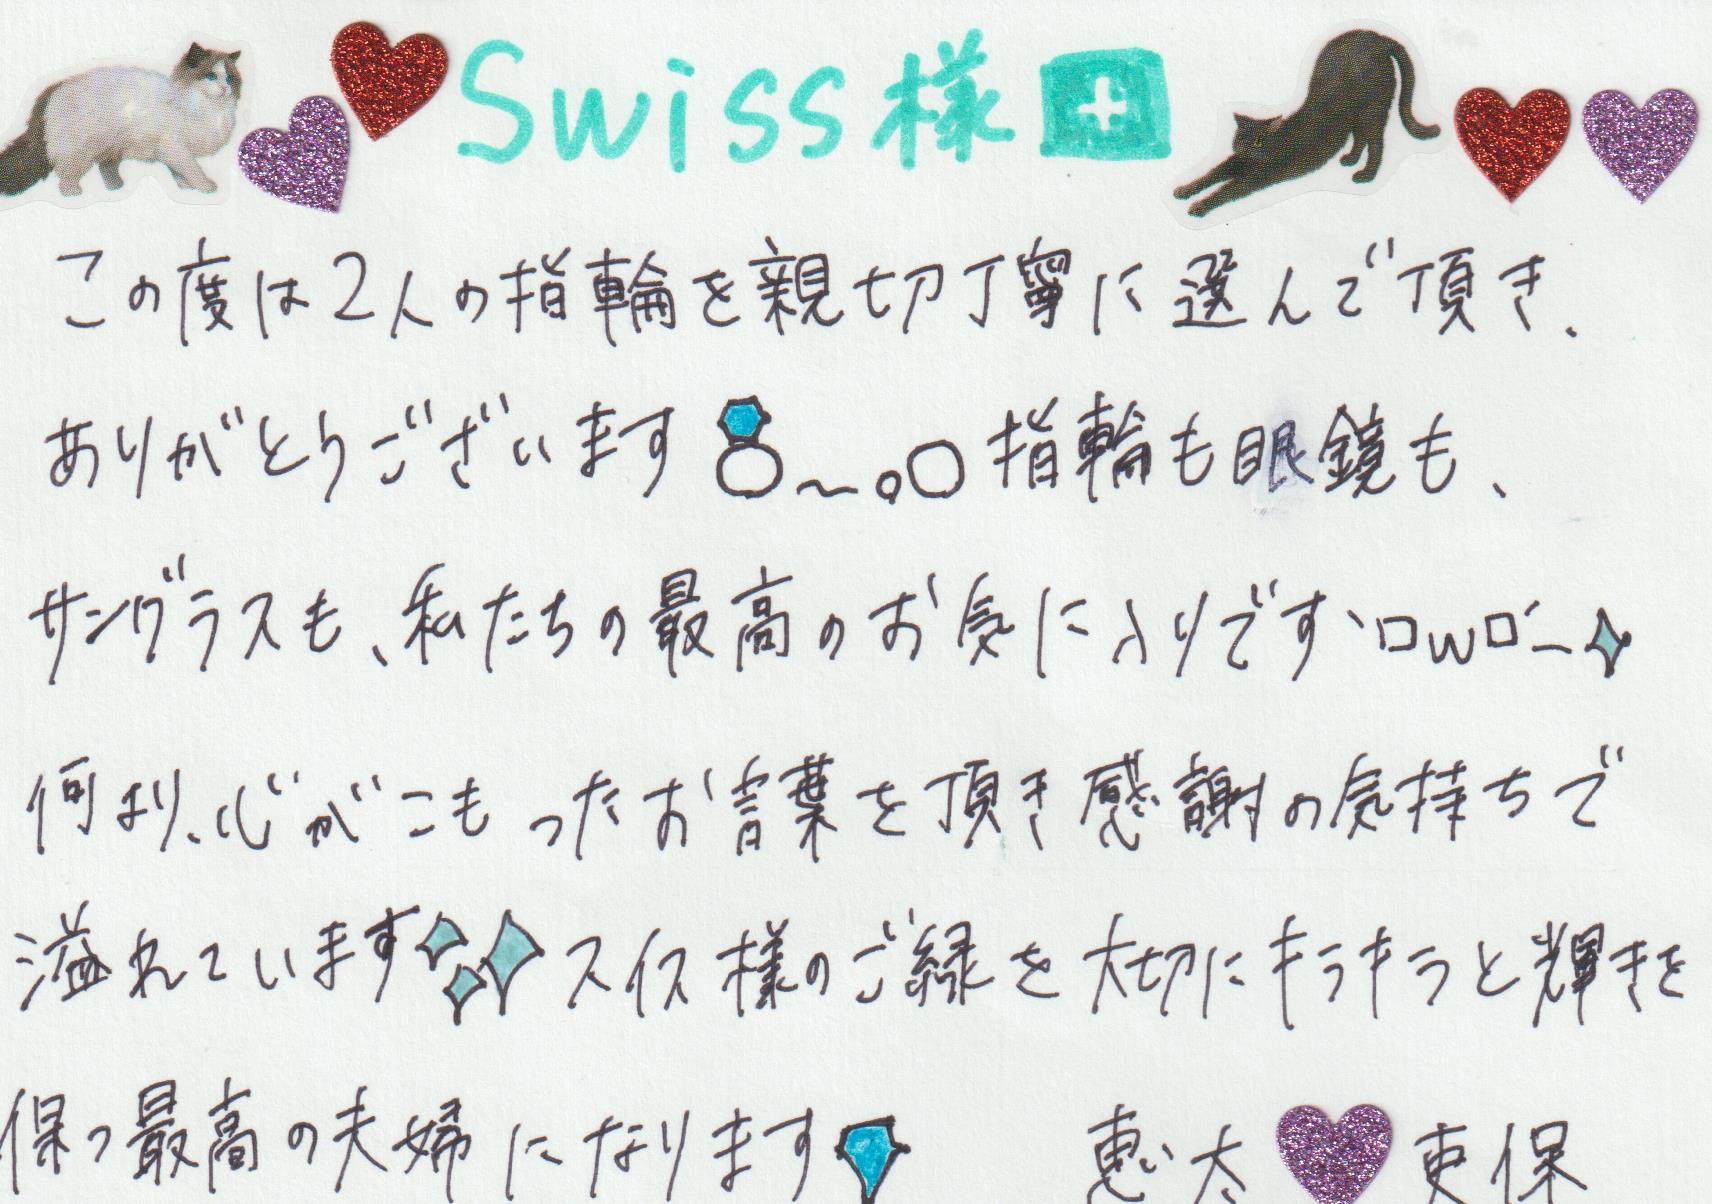 Swiss様
この度は2人の指輪を親切丁寧に選んで頂き、
ありがとうございます 〜。指輪も眼鏡も、
サングラスも、私たちの最高のお気に入りです`ロwロ´ー
何より、心がこもったお言葉を頂き感謝の気持ちで
溢れています スイス様のご縁を大切にキラキラと輝きを
保つ最高の夫婦になります 恵太 吏保